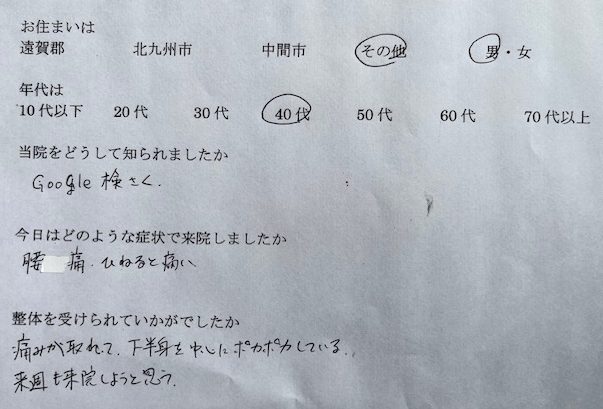 お住まいは
遠賀郡 北九州市 中間市 その他 男・女
年代は
10代以下 20代 30代 40代 50代 60代 70代以上
当院をどうして知られましたか
Google 検さく.
今日はどのような症状で来院しましたか
腰 痛. ひねると痛い
整体を受けられていかがでしたか
痛みが取れて、下半身を中心にポカポカしている.
来週も来院しようと思う.